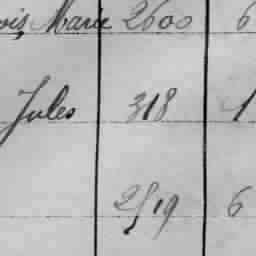 ois Marie 2600 6
Jules 318 1
2519 6